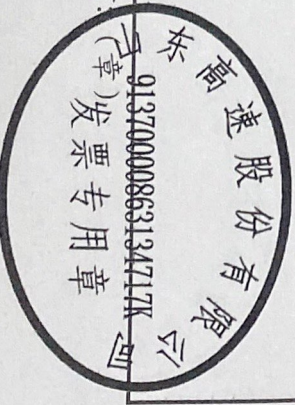 山东高速股份有限公司
91370000863134717K
发票专用章
(章)